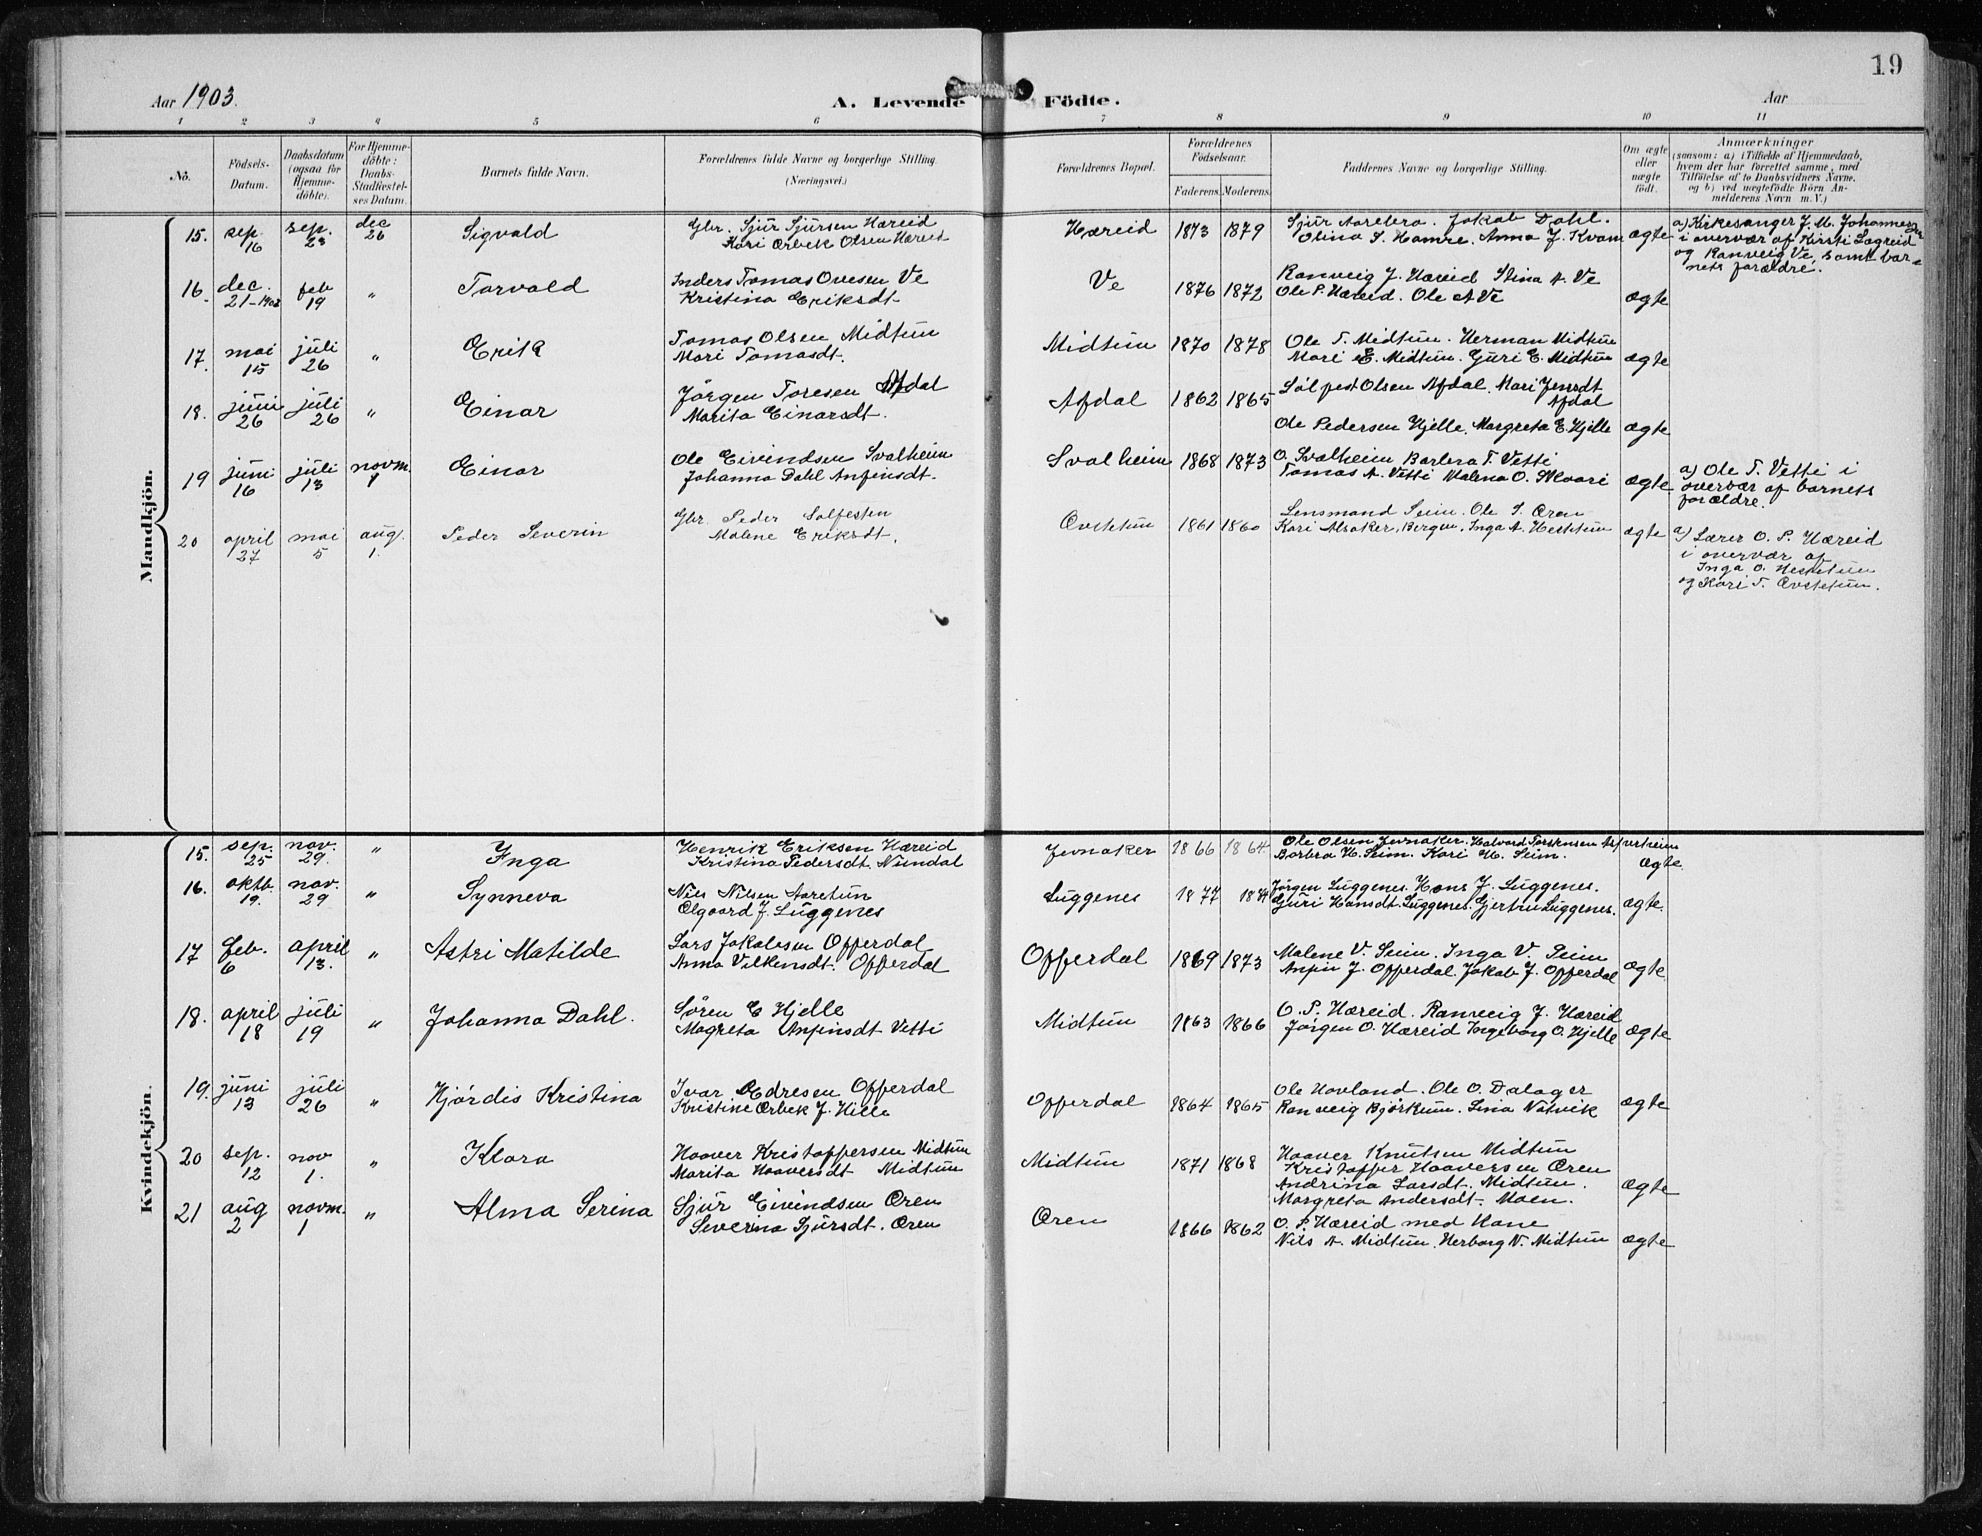 19
Aar 1903.
A. Levende Födte.
Aar
1 2 3 4 5 6 7 8 9 10 11
No.
Födsels-Datum.
Daabsdatum (ogsaa for Hjemme-döbte).
For Hjemme-döbte: Daabs-Stadfæstel-ses Datum.
Barnets fulde Navn.
Forældrenes fulde Navne og borgerlige Stilling.
(Næringsvei.)
Forældrenes Bopæl.
Forældrenes Födselsaar.
Faderens. Moderens.
Faddernes Navne og borgerlige Stilling.
Om ægte eller uægte födt.
Anmærkninger
(saasom: a) i Tilfælde af Hjemmedaab,
hvem der har forrettet samme, med
Tilföielse af to Daabsvidners Navne.
og b) ved uægtefödte Börn An-
melderens Navn m. V.)
Mandkjön.
15. sep. 16 sep. 23 dec 26 Sigvald Gbr. Sjur Sjursen Hæreid Hæreid 1873 1879 Sjur Aarebro. Jakob Dahl. a) Kirkesanger J. M. Johannessen
Kari Ørbek Olsen Hæreid Olina S. Hamre. Anna J. Kvam ægte i overvær af Kirsti Lægreid
og Ranveig Ve, samt bar-
nets forældre.
16. dec. 21-1902 feb 19 " Torvald Inders Tomas Ovesen Ve Ve 1876 1872 Ranveig J. Hæreid Stina A. Ve
Kristina Eriksdt Ole P. Hæreid. Ole A Ve ægte
17. mai 15 juli 26 " Erik Tomas Olsen Midtun Midtun 1870 1878 Ole T. Midtun. Herman Midtun
Mari Tomasdt. Mari E. Midtun. Guri E. Midtun ægte
18. juni 26 juli 26 " Einar Jørgen Toresen Afdal Afdal 1862 1865 Sølfest Olsen Afdal. Mari Jensdt
Marita Einarsdt. Afdal
Ole Pedersen Hjelle. Margreta E. Hjelle ægte
19 juni 16 juli 13 novm. 1 Einar Ole Eivindsen Svalheim Svalheim 1868 1873 O. Svalheim Barbra T. Vetti a) Ole T. Vetti i
Johanna Dahl Anfinsdt. Tomas A. Vetti Malena O. Skaari ægte overvær af barnets
forældre.
20 april 27 mai 5 aug. 1. Peder Severin Gbr. Peder Solfesten Øvstetun 1861 1860 Lensmand Seim. Ole S. Øren
Malene Eriksdt. Kari Alsaker, Bergen. Inga A. Hestetun ægte a) Lærer O. P. Hæreid
i overvær af
Inga O. Hestetun
og Kari T. Øvstetun.
Kvindekjön.
15. sep. 25 nov. 29 " Inga Henrik Eriksen Hæreid Jevnaker 1866 1864 Ole Olsen Jevnaker. Halvard Torstensen
Kristina Pedersdt. Nundal Barbra H. Seim. Kari H. Seim. ægte
16. oktb. 19. nov. 29 " Synneva Nils Nilsen Aaretun Luggenes 1877 Jørgen Luggenes. Hans J. Luggenes.
Olgaard J. Luggenes Guri Hansdt. Luggenes. Gjertru Luggenes. ægte.
17 feb. 6 april 13. " Astri Matilde Lars Jakobsen Offerdal Offerdal 1869 1873 Malene V. Seim. Inga V. Seim
Anna Vilkensdt. Offerdal Anfin J. Offerdal. Jakob J. Offerdal ægte
18. april 18 juli 19 " Johanna Dahl. Søren E Hjelle Midtun 1863 1866 O. P. Hæreid. Ranveig J. Hæreid
Magreta Anfinsdt Vetti Jørgen O. Hæreid Ingeborg O. Hjelle ægte
19. juni 13 juli 26 " Hjørdis Kristina Ivar Edresen Offerdal Offerdal 1864 1865 Ole Hovland. Ole O. Dalager
Kristine Ørbek J. Hille Ranveig Bjørkum. Lina Natvik ægte
20 sep. 12 nov 1. " Klara Haaver Kristoffersen Midtun Midtun 1871 1868 Haaver Knutsen Midtun
Marita Haaversdt Midtun Kristoffer Haaversen Øren
Andrina Larsdt. Midtun.
Margreta Andersdt. Moen. ægte
21 aug 2 novm. 1 " Alma Serina Sjur Eivindsen Øren Øren 1866 1862 O. P. Hæreid med Kone
Severina Sjursdt. Øren Nils A. Midtun. Herborg N. Midtun ægte